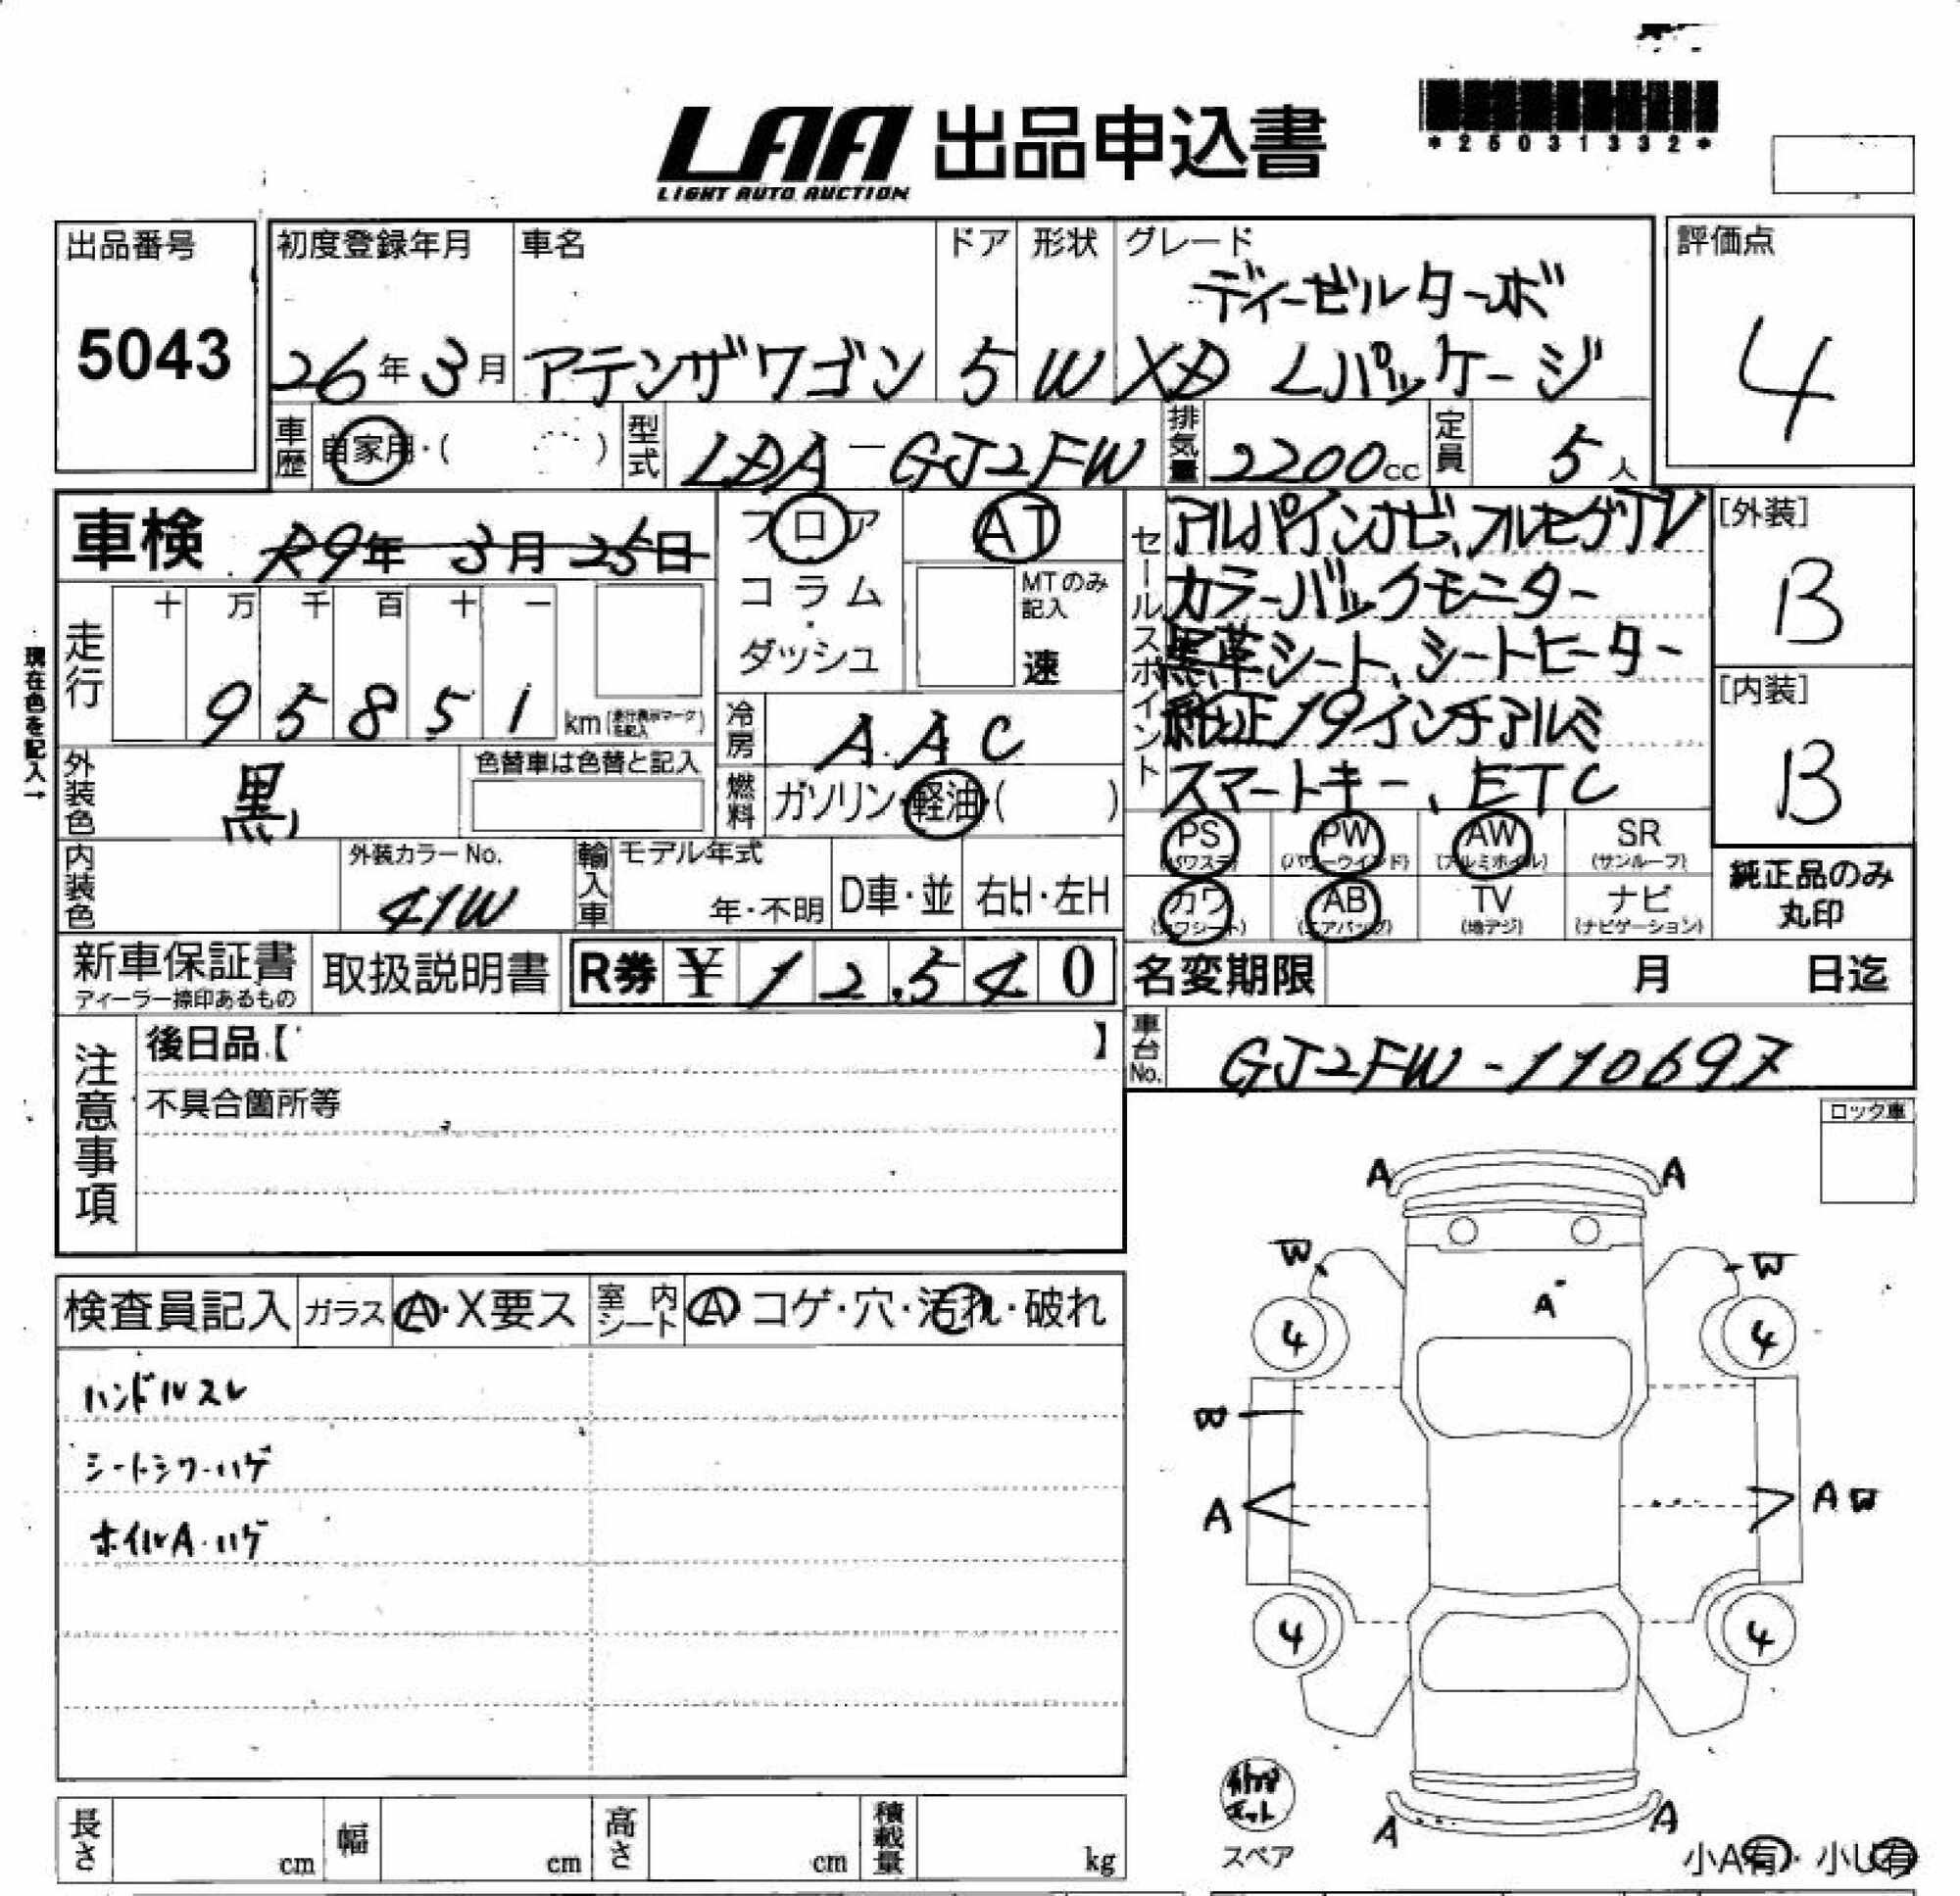 LAA 出品申込書
LIGHT AUTO AUCTION
*25031332*
出品番号
5043
初度登録年月
26年3月
車名
アテンザワゴン
ドア
5
形状
W
グレード
ディーゼルターボ
XD Lパッケージ
評価点
4
車歴 自家用・( )
型式 LDA-GJ2FW
排気量 2200cc
定員 5人
車検 R9年 3月 25日
フロア
コラム
ダッシュ
AT
MTのみ記入
速
セールスポイント
アルパインナビ、フルセグTV
カラーバックモニター
黒革シート、シートヒーター
純正19インチアルミ
スマートキー、ETC
[外装]
B
[内装]
B
現在色を記入→
走行
十 万 千 百 十 一
9 5 8 5 1 km
冷房 A.AC
燃料 ガソリン・軽油・( )
外装色 黒
色替車は色替と記入
内装色
外装カラーNo.
41W
輸入車 モデル年式
年・不明
D車・並
右H・左H
PS (パワステ)
PW (パワーウインド)
AW (アルミホイル)
SR (サンルーフ)
カワ (カワシート)
AB (エアバッグ)
TV (地デジ)
ナビ (ナビゲーション)
純正品のみ
丸印
新車保証書
ディーラー捺印あるもの
取扱説明書
R券 ¥12,540
名変期限 月 日迄
車台No. GJ2FW-110697
注意事項
後日品【 】
不具合箇所等
ロック車
検査員記入
ガラス A・X要ス
室内シート A コゲ・穴・汚れ・破れ
ハンドルスレ
シートシワ・ハゲ
ホイルA・ハゲ
A A
W W
A
4 4
A
A W
4 4
スペア
A A
小A有・小U有
長さ cm
幅 cm
高さ cm
積載量 kg